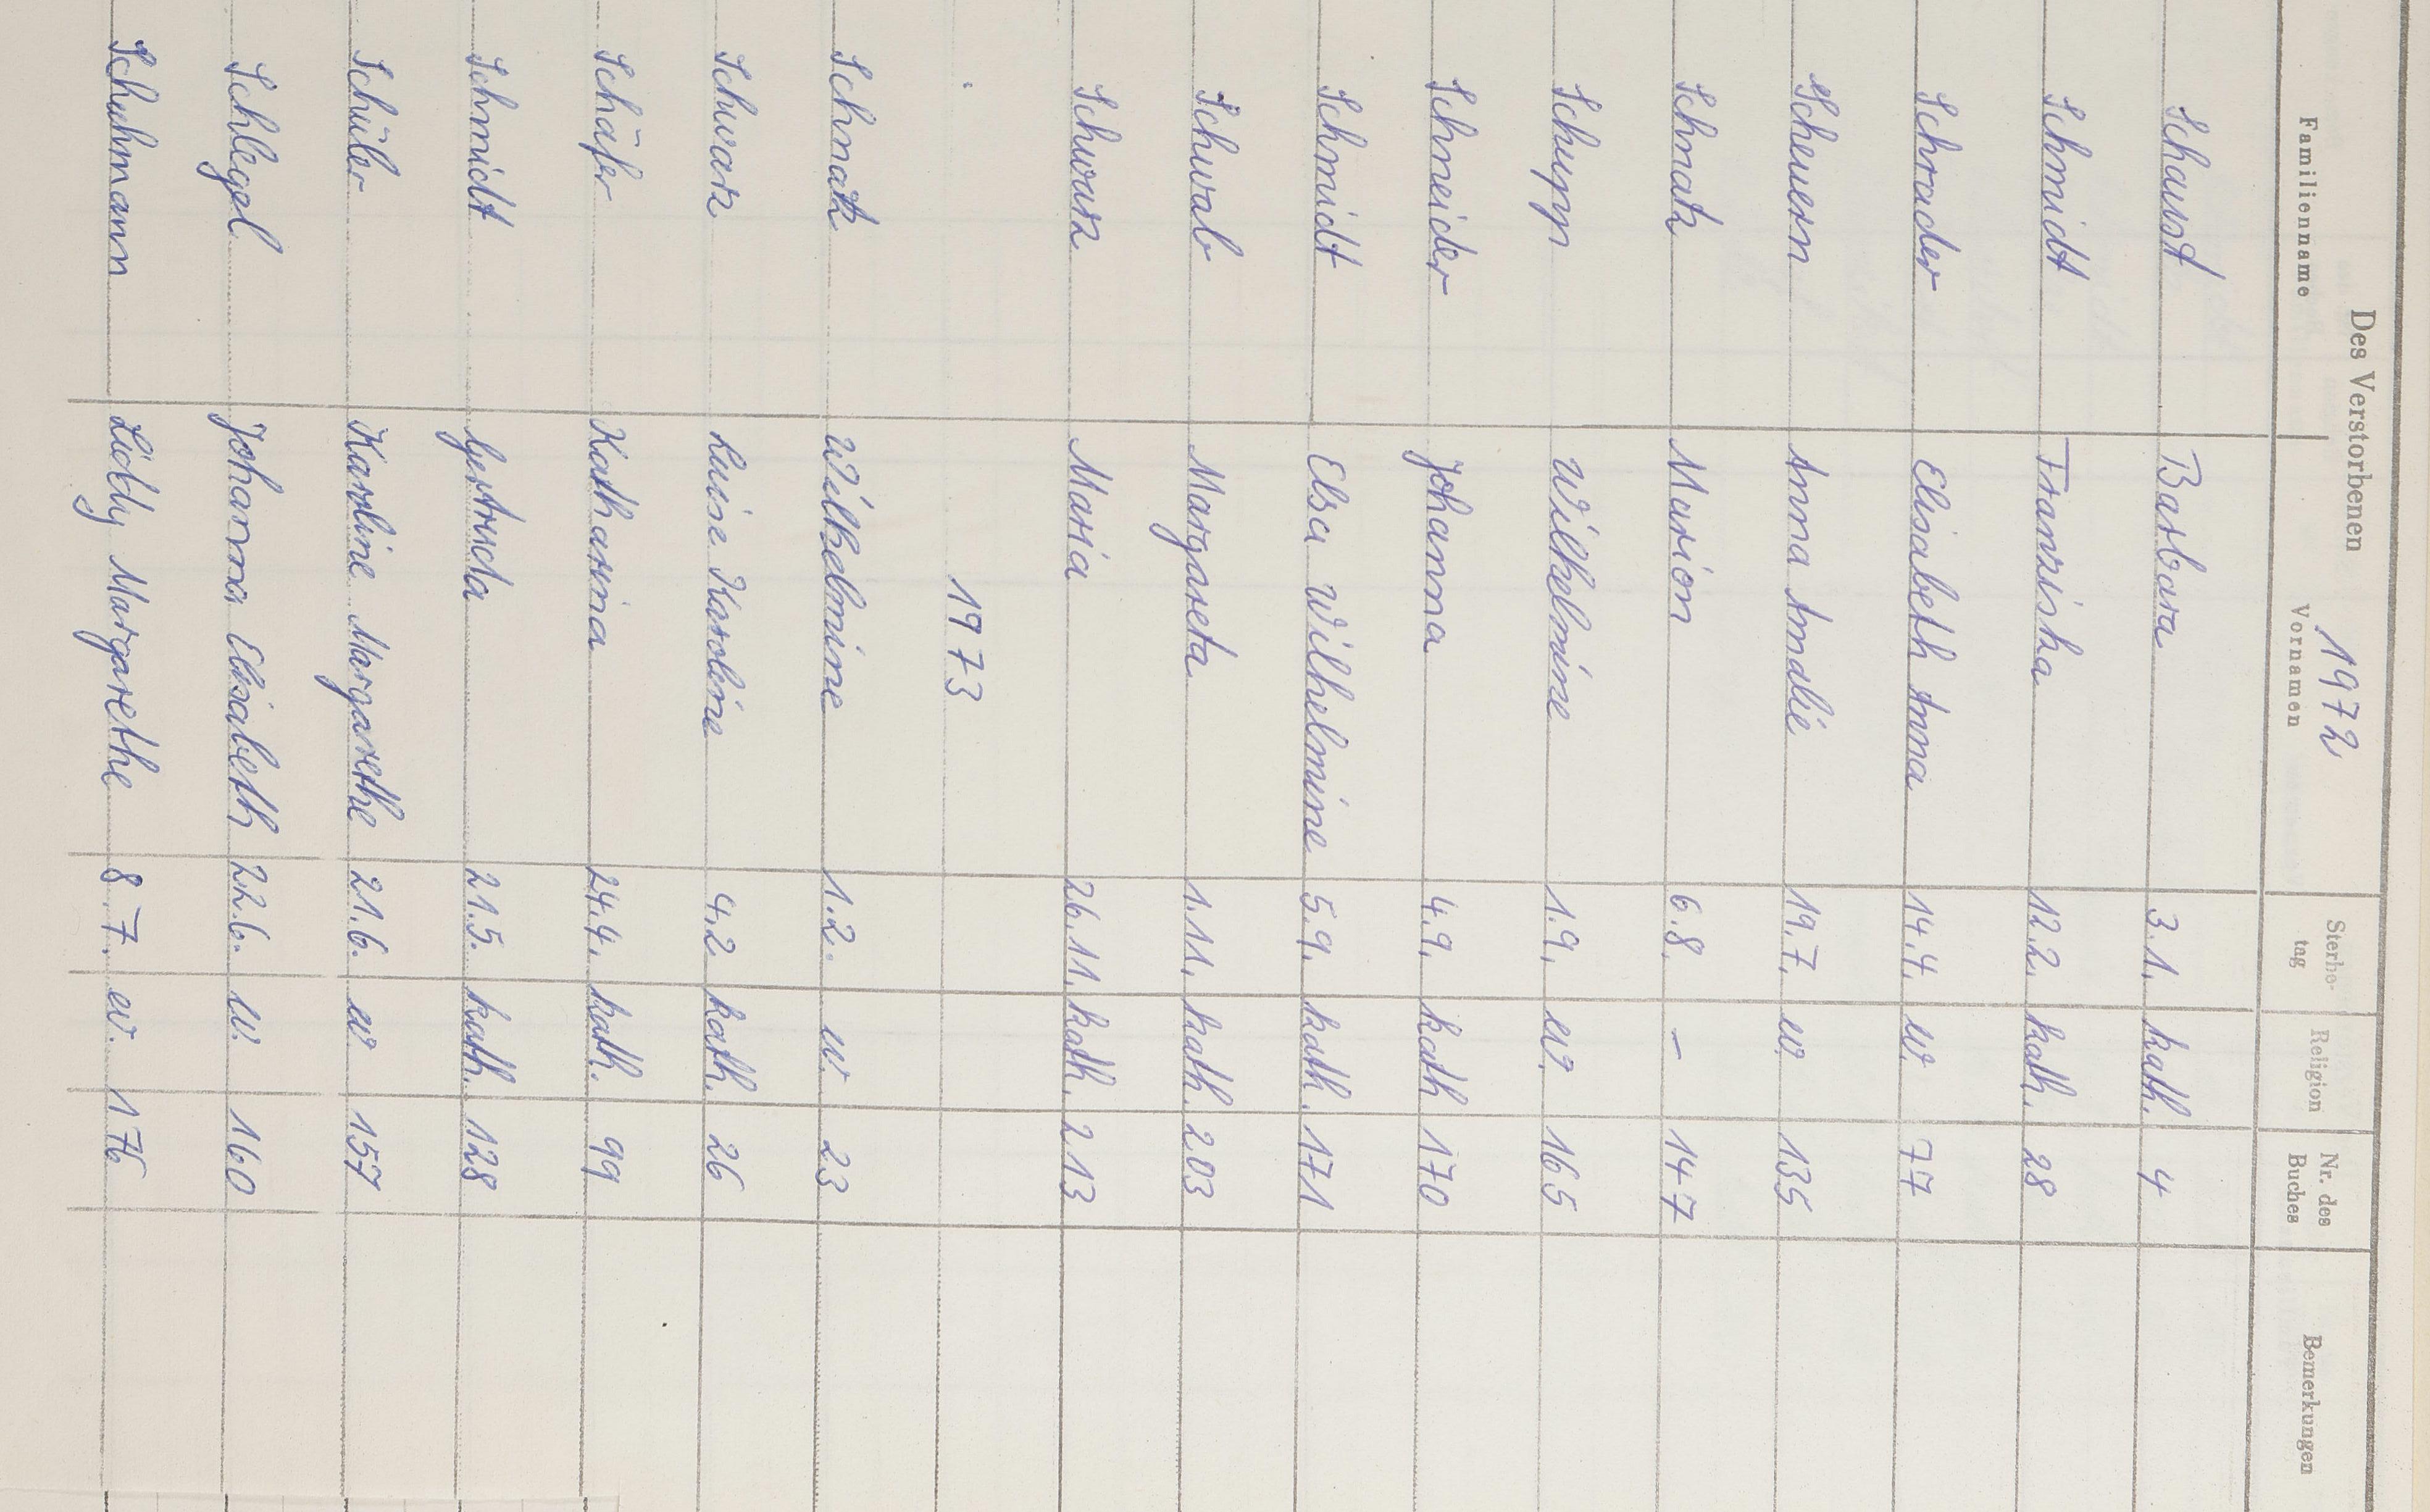 Des Verstorbenen 1972
Familienname Vornamen Sterbe-tag Religion Nr. des Buches Bemerkungen
Schaust Barbara 3.1. kath. 4
Schmidt Franziska 12.2. kath. 28
Schrader Elisabeth Anna 14.4. ev. 77
Scheuern Anna Amalie 19.7. ev. 135
Schnatz Marion 6.8. – 147
Schupp Wilhelmine 1.9. ev. 165
Schneider Johanna 4.9. kath 170
Schmidt Elsa Wilhelmine 5.9. kath. 171
Schwab Margareta 1.11. kath. 203
Schwarz Maria 26.11. kath. 213
1973
Schnatz Wilhelmine 1.2. ev. 23
Schwarz Luise Karoline 4.2 kath. 26
Schäfer Katharina 24.4. kath. 99
Schmidt Gertruda 21.5. kath. 128
Schüler Karoline Margarethe 21.6. ev 157
Schlegel Johanna Elisabeth 22.6. ev. 160
Schuhmann Liddy Margarethe 8.7. ev. 176